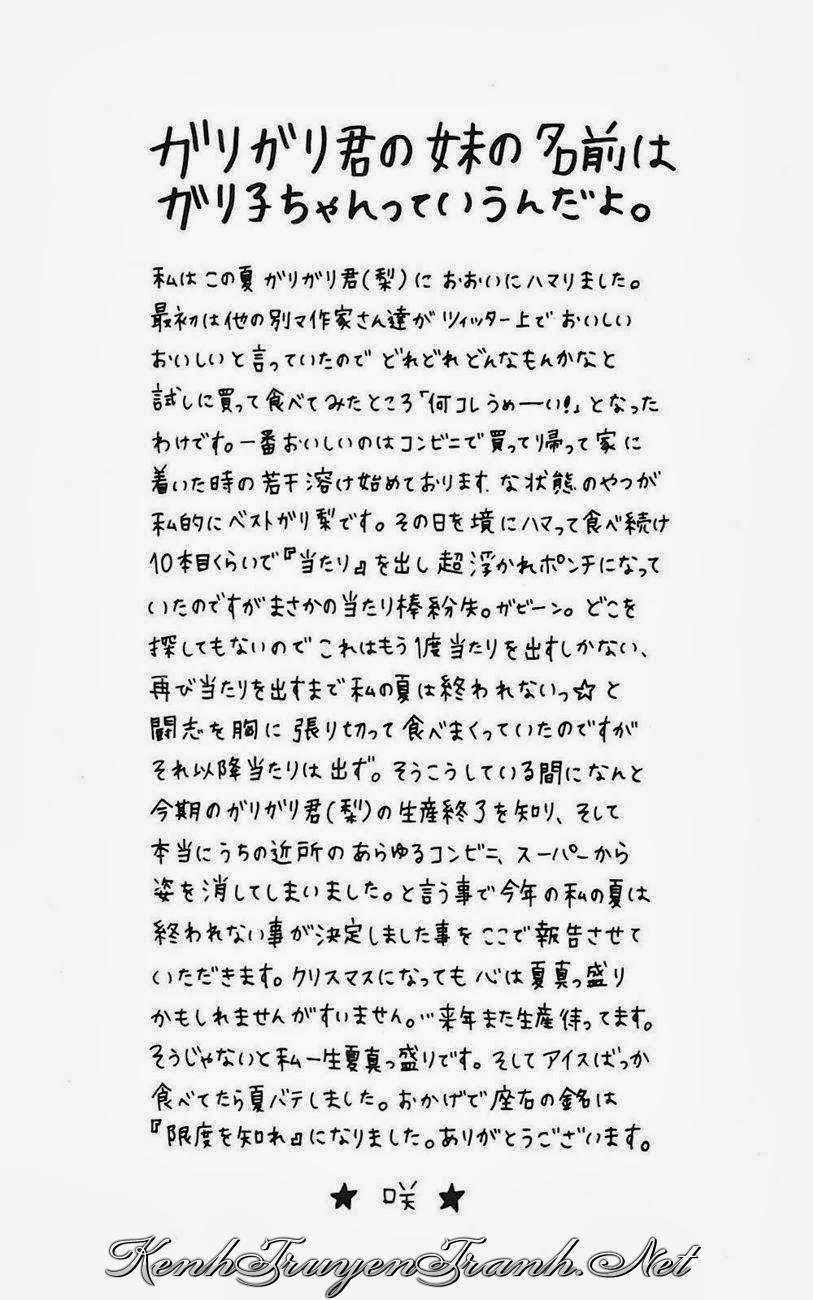 ガリガリ君の妹の名前は
ガリ子ちゃんっていうんだよ。
私はこの夏ガリガリ君(梨)におおいにハマりました。
最初は他の別マ作家さん達がツィッター上でおいしい
おいしいと言っていたのでどれどれどんなもんかなと
試しに買って食べてみたところ「何コレうめーーい!」となった
わけです。一番おいしいのはコンビニで買って帰って家に
着いた時の若干溶け始めております、な状態のやつが
私的にベストガリ梨です。その日を境にハマって食べ続け
10本目くらいで『当たり』を出し超浮かれポンチになって
いたのですがまさかの当たり棒紛失。ガビーン。どこを
探してもないのでこれはもう1度当たりを出すしかない、
再び当たりを出すまで私の夏は終われないっ☆と
闘志を胸に張り切って食べまくっていたのですが
それ以降当たりは出ず。そうこうしている間になんと
今期のガリガリ君(梨)の生産終了を知り、そして
本当にうちの近所のあらゆるコンビニ、スーパーから
姿を消してしまいました。と言う事で今年の私の夏は
終われない事が決定しました事をここで報告させて
いただきます。クリスマスになっても心は夏真っ盛り
かもしれませんがすいません。…来年また生産待ってます。
そうじゃないと私一生夏真っ盛りです。そしてアイスばっか
食べてたら夏バテしました。おかげで座右の銘は
『限度を知れ』になりました。ありがとうございます。
★ 咲 ★
KenhTruyenTranh.Net